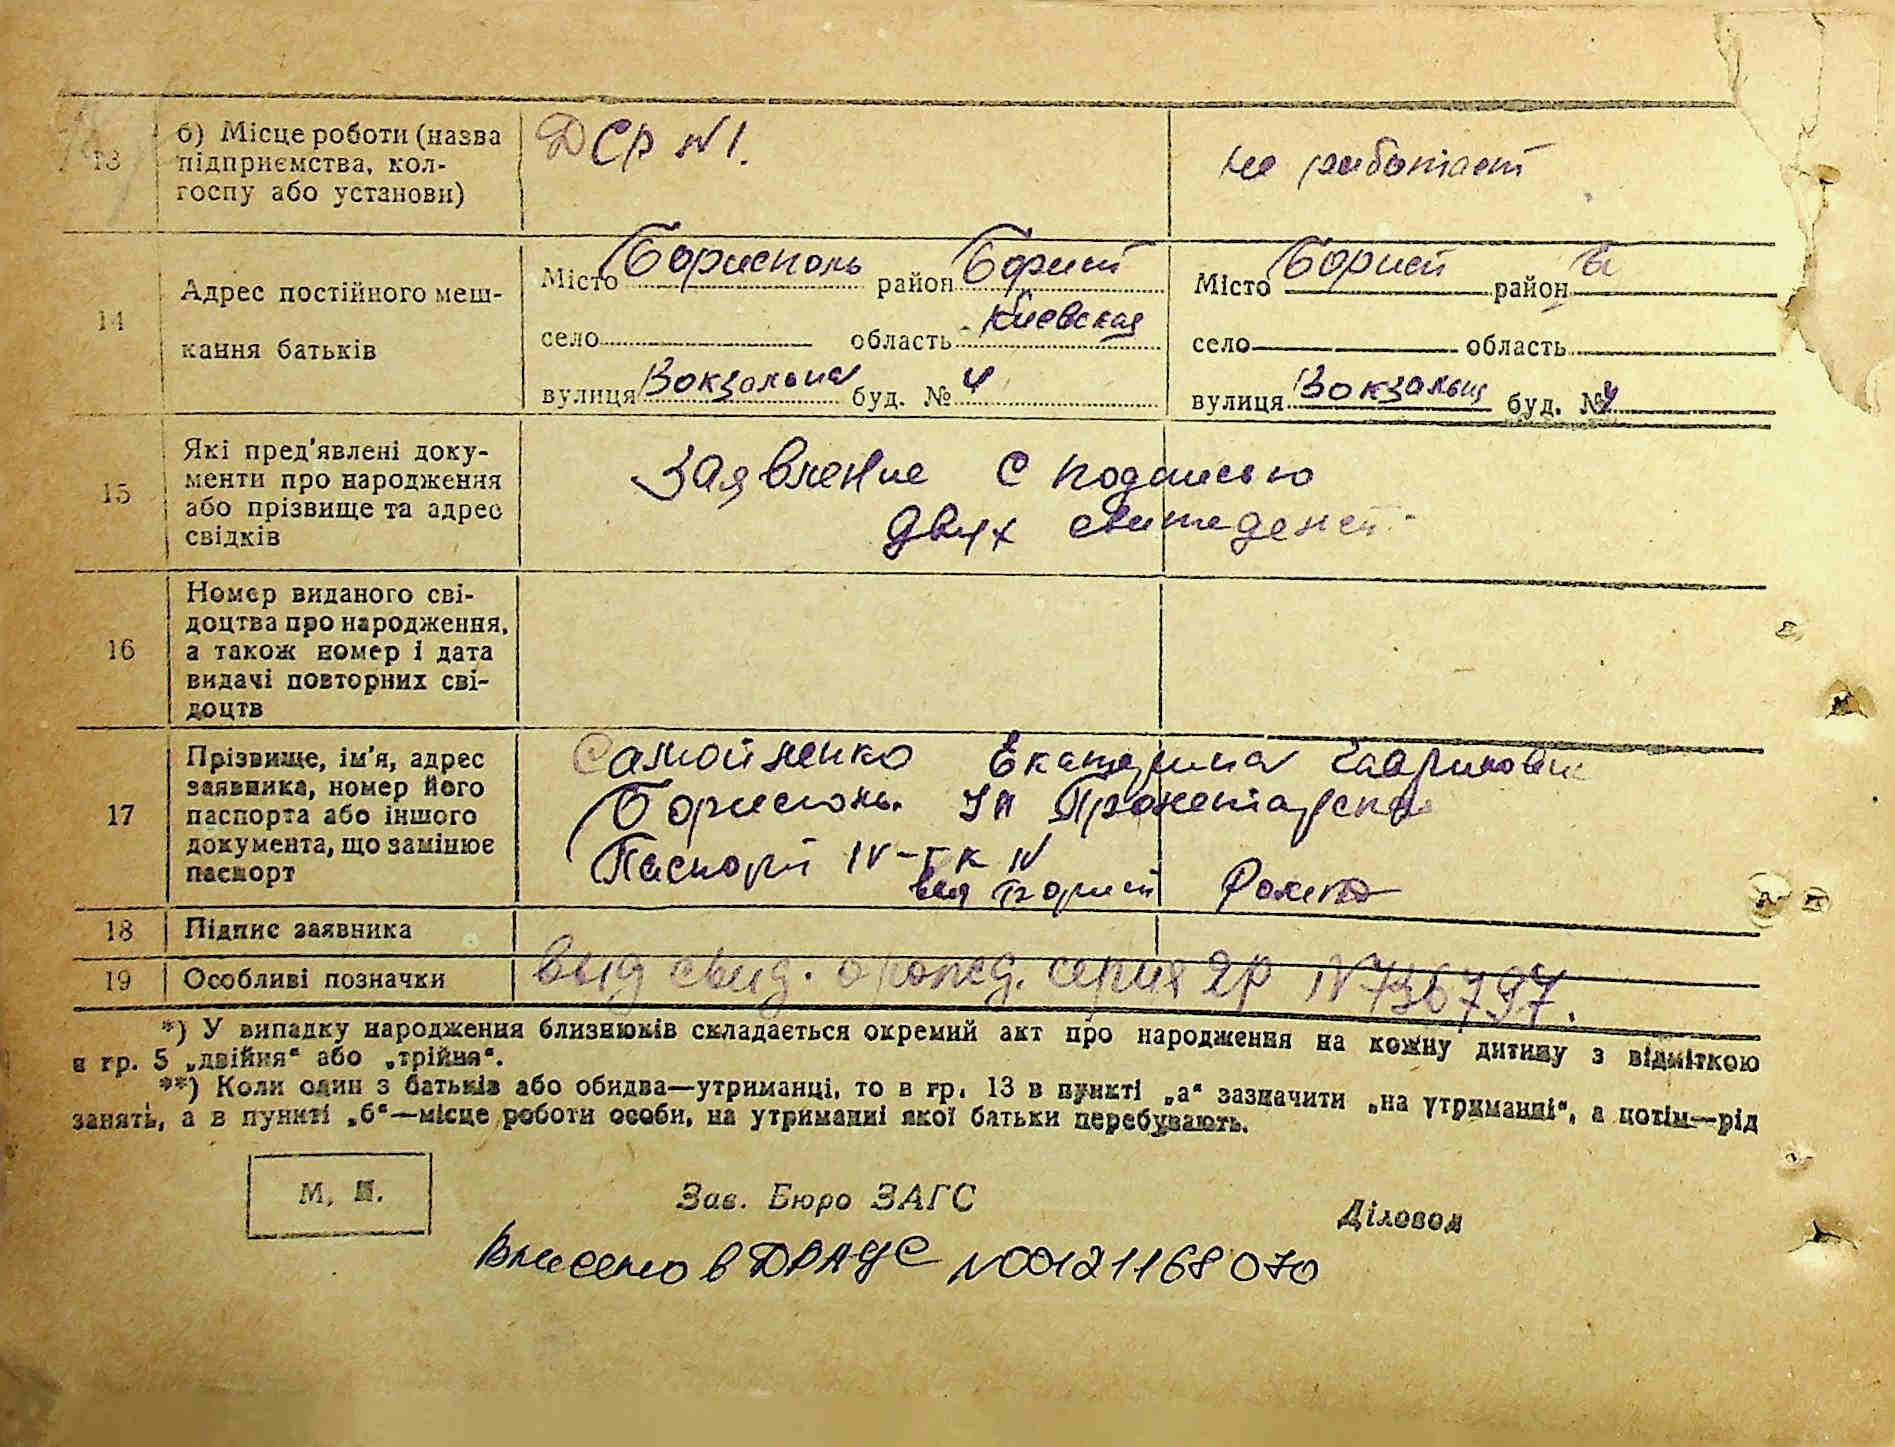 13
б) Місце роботи (назва
підприємства, кол-
госпу або установи)
ДСР N 1.
не работает
14
Адрес постійного меш-
кання батьків
Місто Борисполь район Борисп
село область Киевская
вулиця Вокзальна буд. № 4
Місто Борисп район
село область
вулиця Вокзальн буд. № 4
15
Які пред'явлені доку-
менти про народження
або прізвище та адрес
свідків
Заявление с подписью
двух
16
Номер виданого сві-
доцтва про народження,
а також номер і дата
видачі повторних сві-
доцтв
17
Прізвище, ім'я, адрес
заявника, номер його
паспорта або іншого
документа, що замінює
паспорт
Самойленко Екатерина Гавриловн
Борисполь. ул Пролетарская
Паспорт IV-ГК N
Борисп
18
Підпис заявника
19
Особливі позначки
выд свид. о рожд. серия ЯР N 736797.
*) У випадку народження близнюків складається окремий акт про народження на кожну дитину з відміткою
в гр. 5 „двійня“ або „трійня“.
**) Коли один з батьків або обидва—утриманці, то в гр. 13 в пункті „а“ зазначити „на утриманні“, а потім—рід
занять, а в пункті „б“—місце роботи особи, на утриманні якої батьки перебувають.
М. П.
Зав. Бюро ЗАГС
Діловод
Внесено в ДРАЦС N 00121168070